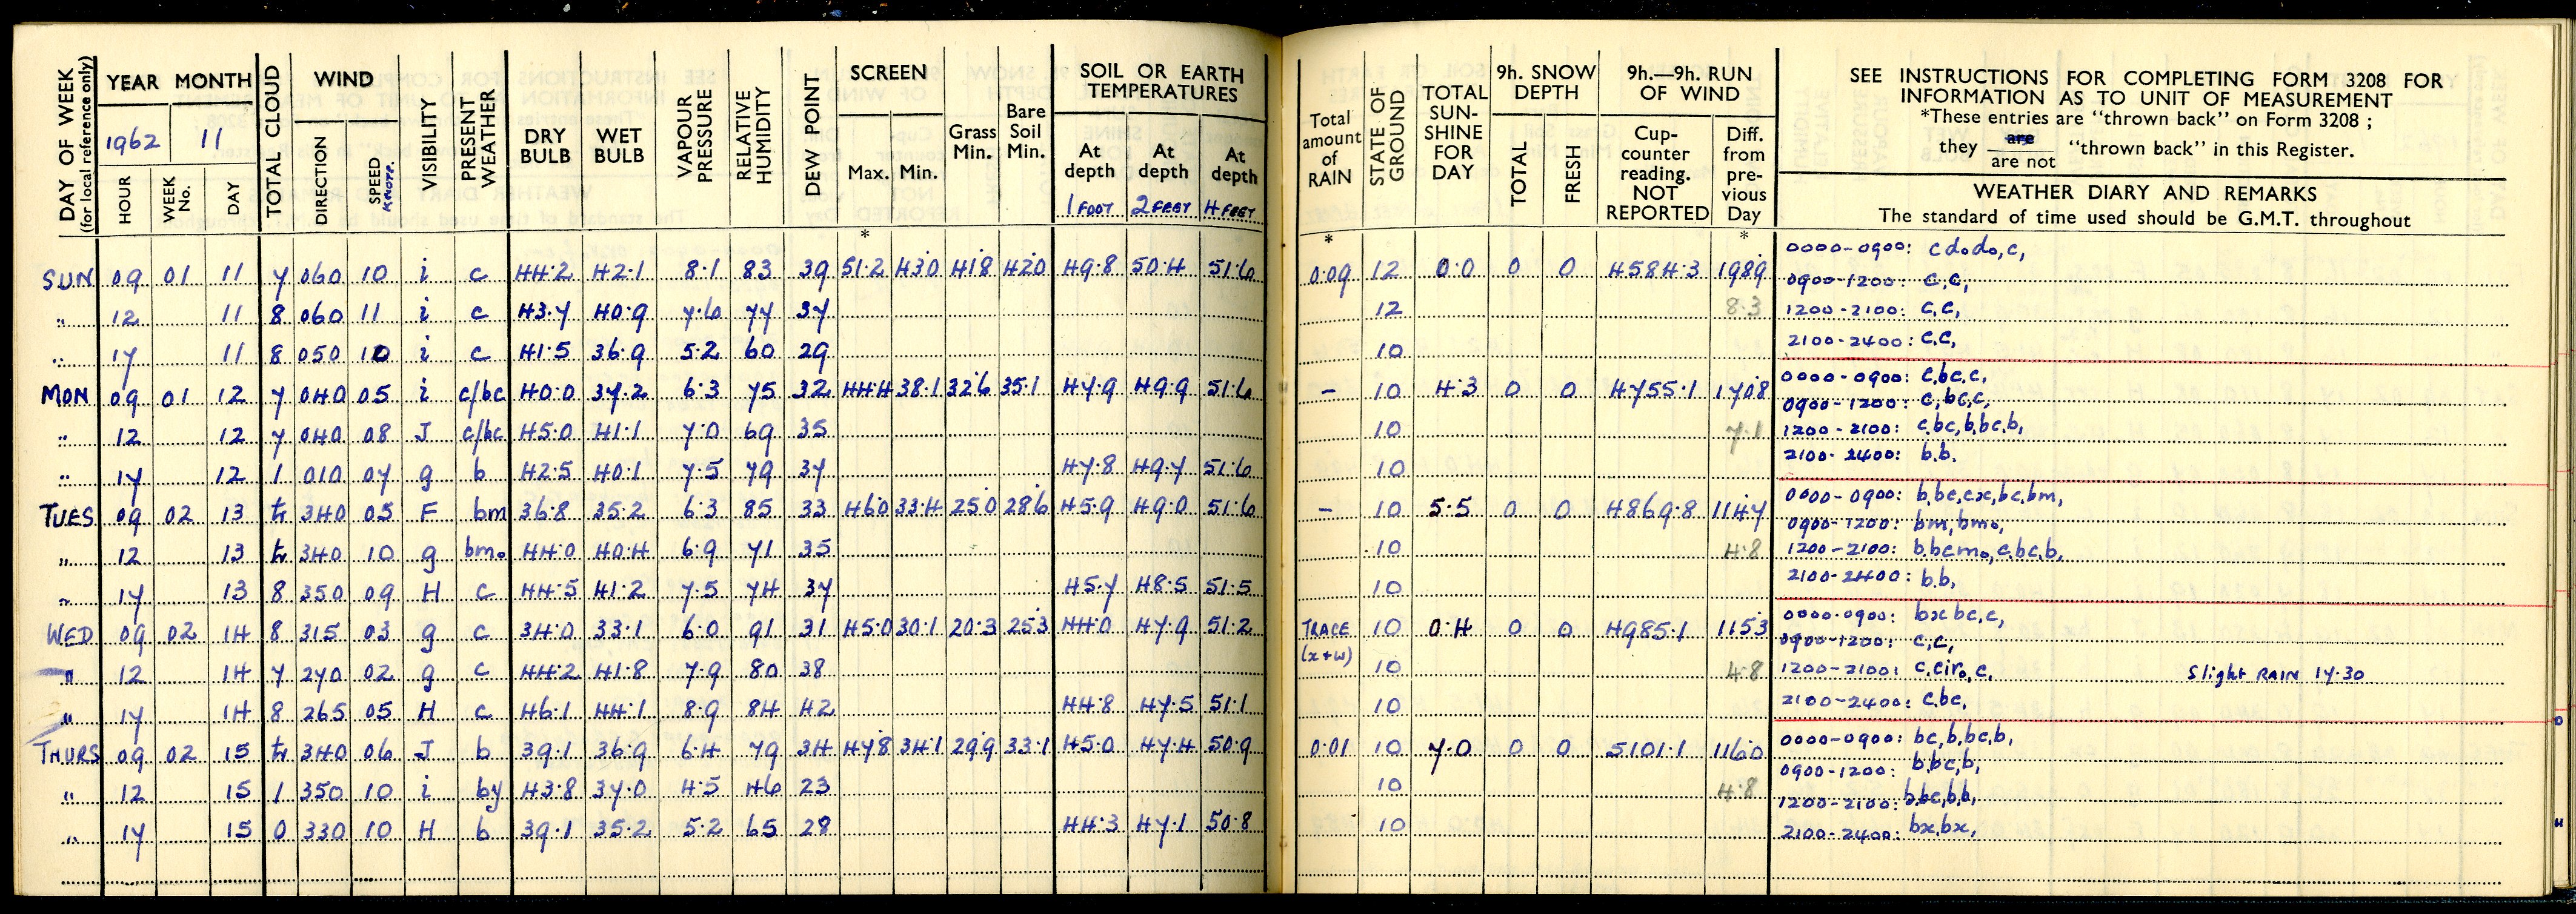 DAY OF WEEK (for local reference only)
YEAR MONTH
1962 11
HOUR WEEK No. DAY
TOTAL CLOUD
WIND
DIRECTION SPEED KNOTS.
VISIBILITY
PRESENT WEATHER
DRY BULB
WET BULB
VAPOUR PRESSURE
RELATIVE HUMIDITY
DEW POINT
SCREEN
Max. Min.
Grass Min.
Bare Soil Min.
SOIL OR EARTH TEMPERATURES
At depth At depth At depth
1 FOOT 2 FEET 4 FEET
*
Total amount of RAIN
*
STATE OF GROUND
TOTAL SUN-SHINE FOR DAY
9h. SNOW DEPTH
TOTAL FRESH
9h.—9h. RUN OF WIND
Cup-counter reading. NOT REPORTED
Diff. from pre-vious Day
*
SEE INSTRUCTIONS FOR COMPLETING FORM 3208 FOR
INFORMATION AS TO UNIT OF MEASUREMENT
*These entries are "thrown back" on Form 3208 ;
they are / are not "thrown back" in this Register.
WEATHER DIARY AND REMARKS
The standard of time used should be G.M.T. throughout
SUN 09 01 11 7 060 10 i c 44.2 42.1 8.1 83 39 51.2 43.0 41.8 42.0 49.8 50.4 51.6 0.09 12 0.0 0 0 4584.3 198.9 0000-0900: cdodo,c,
0900-1200: c,c,
" 12 11 8 060 11 i c 43.7 40.9 7.6 77 37 12 8.3 1200-2100: c,c,
" 17 11 8 050 10 i c 41.5 36.9 5.2 60 29 10 2100-2400: c,c,
MON 09 01 12 7 040 05 i c/bc 40.0 37.2 6.3 75 32 44.4 38.1 32.6 35.1 47.9 49.9 51.6 - 10 4.3 0 0 4755.1 170.8 0000-0900: c,bc,c,
0900-1200: c,bc,c,
" 12 12 7 040 08 J c/bc 45.0 41.1 7.0 69 35 10 7.1 1200-2100: c,bc,b,bc,b,
" 17 12 1 010 07 g b 42.5 40.1 7.5 79 37 47.8 49.7 51.6 10 2100-2400: b,b.
TUES 09 02 13 tr 340 05 F bm 36.8 35.2 6.3 85 33 46.0 33.4 25.0 28.6 45.9 49.0 51.6 - 10 5.5 0 0 4869.8 114.7 0000-0900: b,bc,cx,bc,bm,
0900-1200: bm,bmo,
" 12 13 tr 340 10 g bmo 44.0 40.4 6.9 71 35 10 4.8 1200-2100: b,bcmo,c,bc,b,
" 17 13 8 350 09 H c 44.5 41.2 7.5 74 37 45.7 48.5 51.5 10 2100-2400: b,b,
WED 09 02 14 8 315 03 g c 34.0 33.1 6.0 91 31 45.0 30.1 20.3 25.3 44.0 47.9 51.2 TRACE (x+w) 10 0.4 0 0 4985.1 115.3 0000-0900: bx,bc,c,
0900-1200: c,c,
" 12 14 7 270 02 g c 44.2 41.8 7.9 80 38 10 4.8 1200-2100: c,ciro,c, Slight RAIN 17.30
" 17 14 8 265 05 H c 46.1 44.1 8.9 84 42 44.8 47.5 51.1 10 2100-2400: c,bc,
THURS 09 02 15 tr 340 06 J b 39.1 36.9 6.4 79 34 47.8 34.1 29.9 33.1 45.0 47.4 50.9 0.01 10 7.0 0 0 5101.1 116.0 0000-0900: bc,b,bc,b,
0900-1200: b,bc,b,
" 12 15 1 350 10 i by 43.8 37.0 4.5 46 23 10 4.8 1200-2100: b,bc,b,b,
" 17 15 0 330 10 H b 39.1 35.2 5.2 65 28 44.3 47.1 50.8 10 2100-2400: bx,bx,